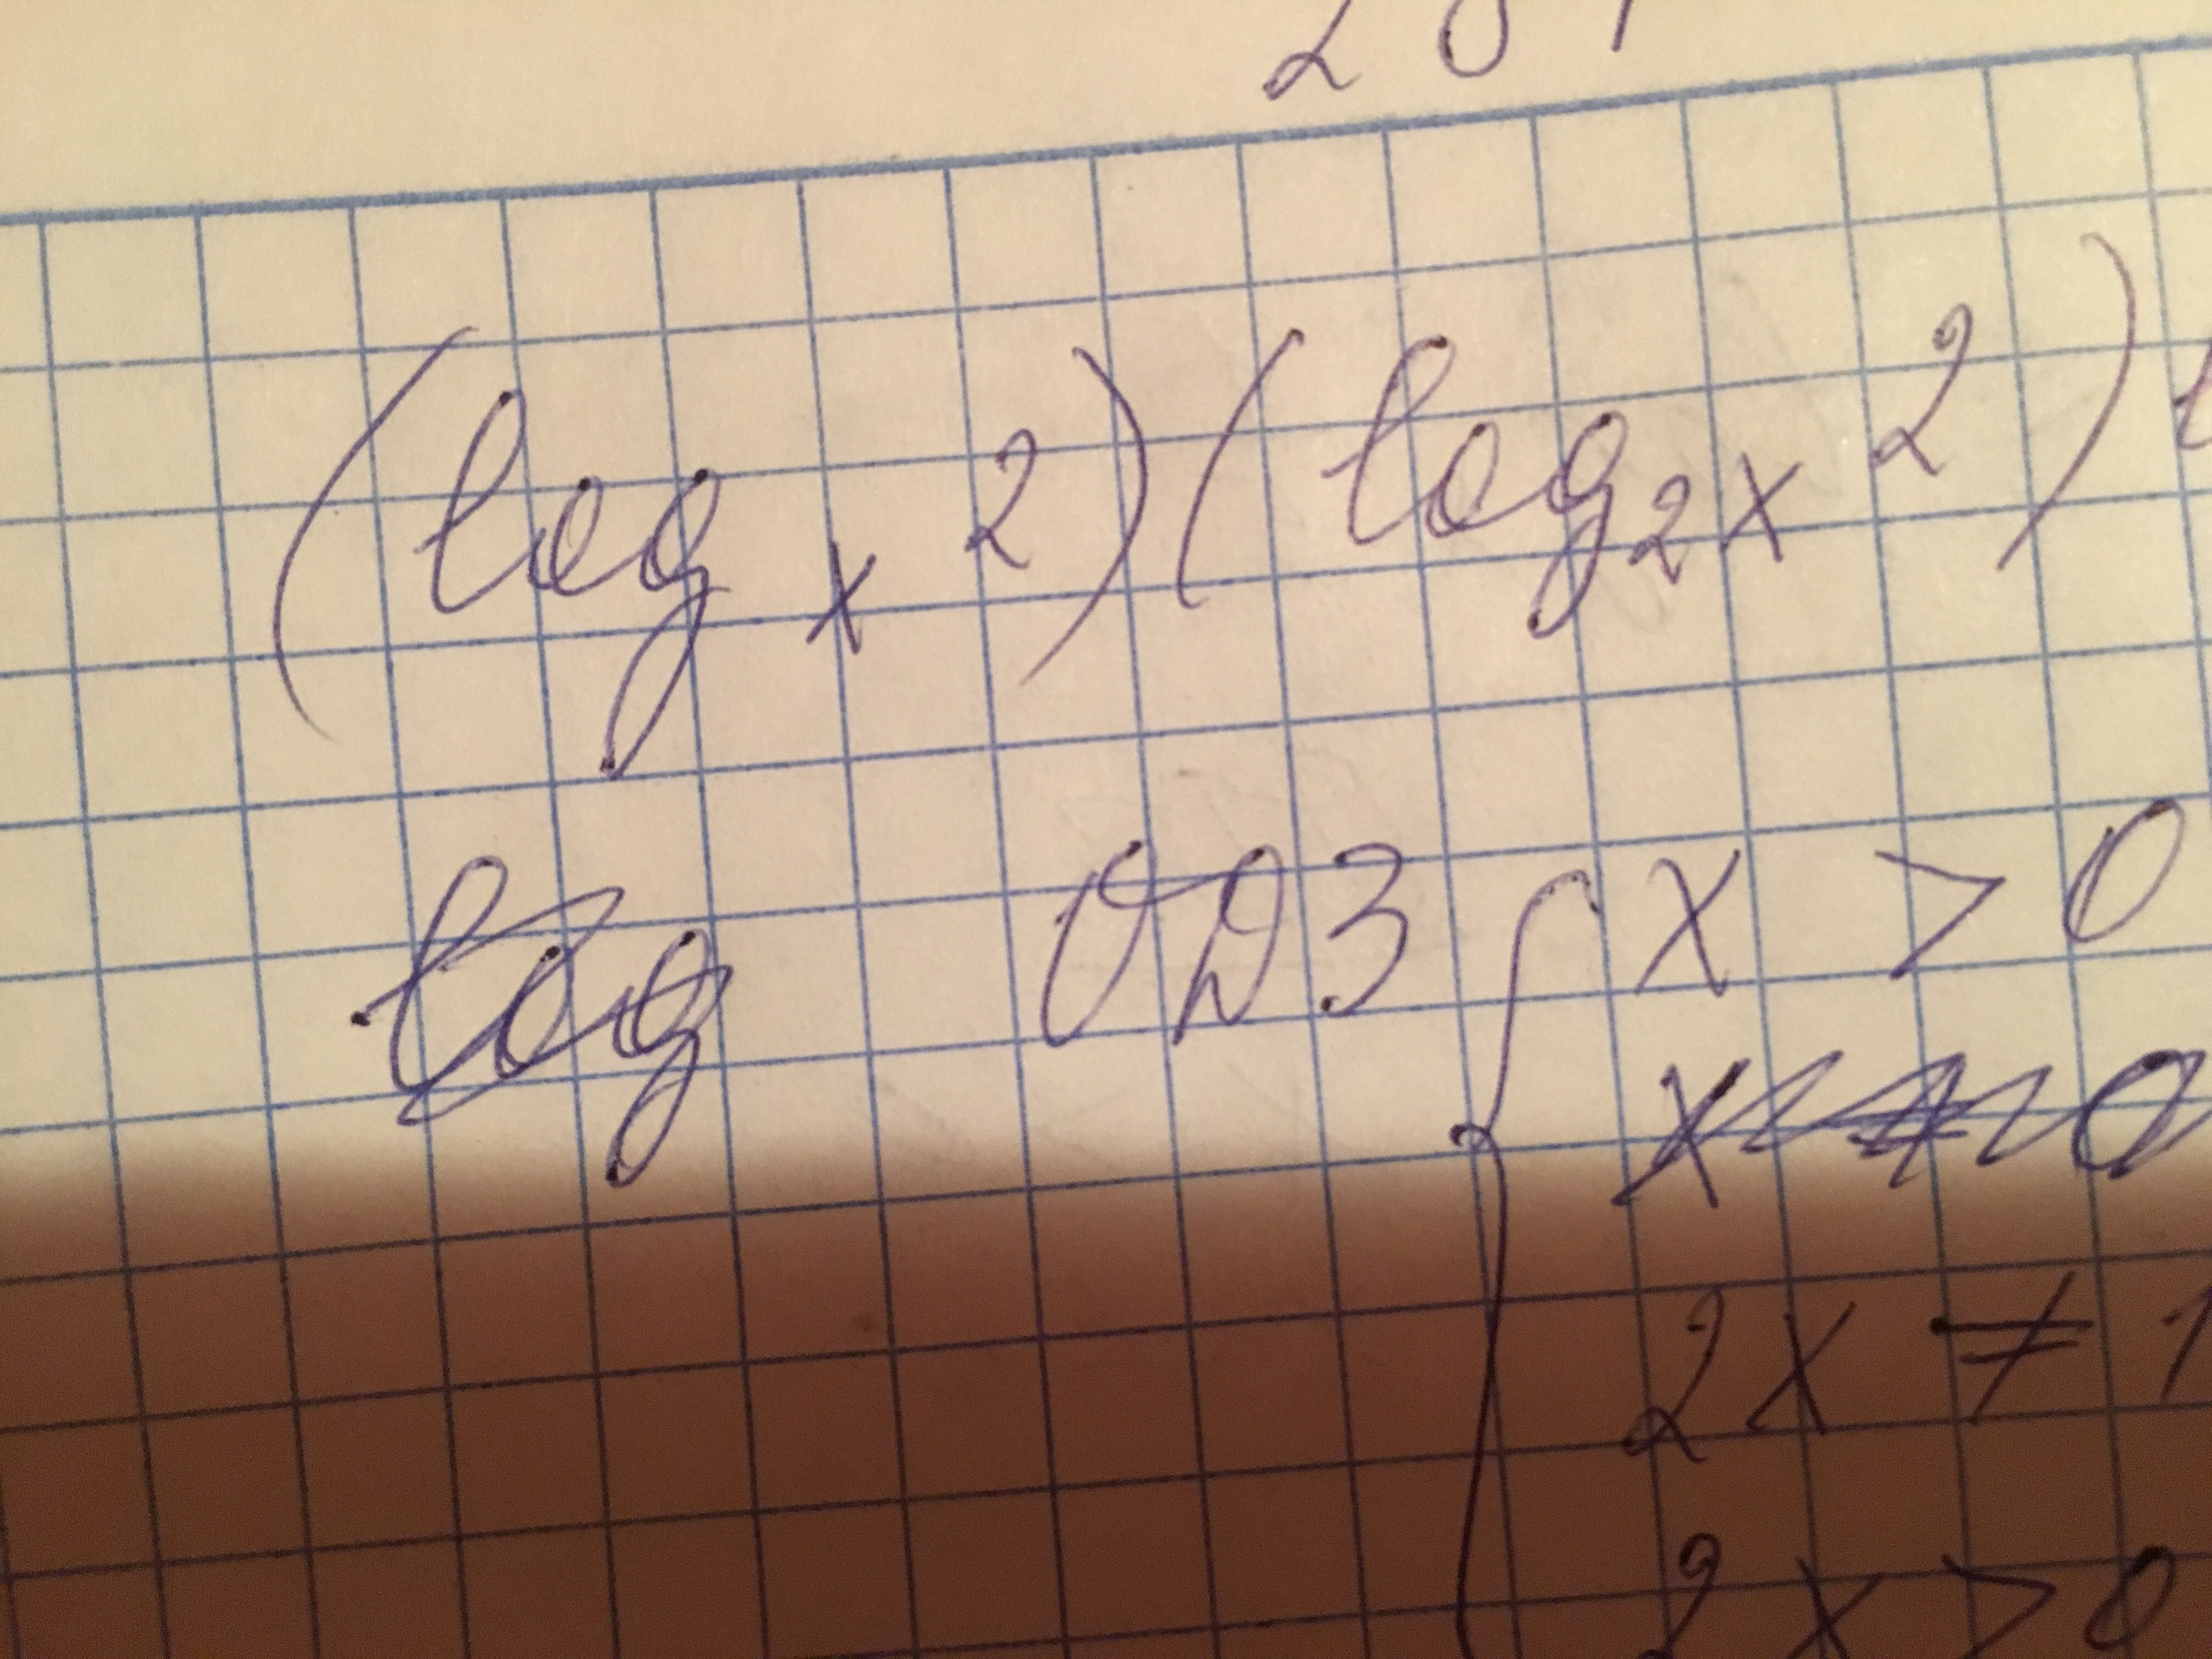 (log_x 2)(log_2x 2)
log ОДЗ { x > 0
2x ≠ 1
2x > 0